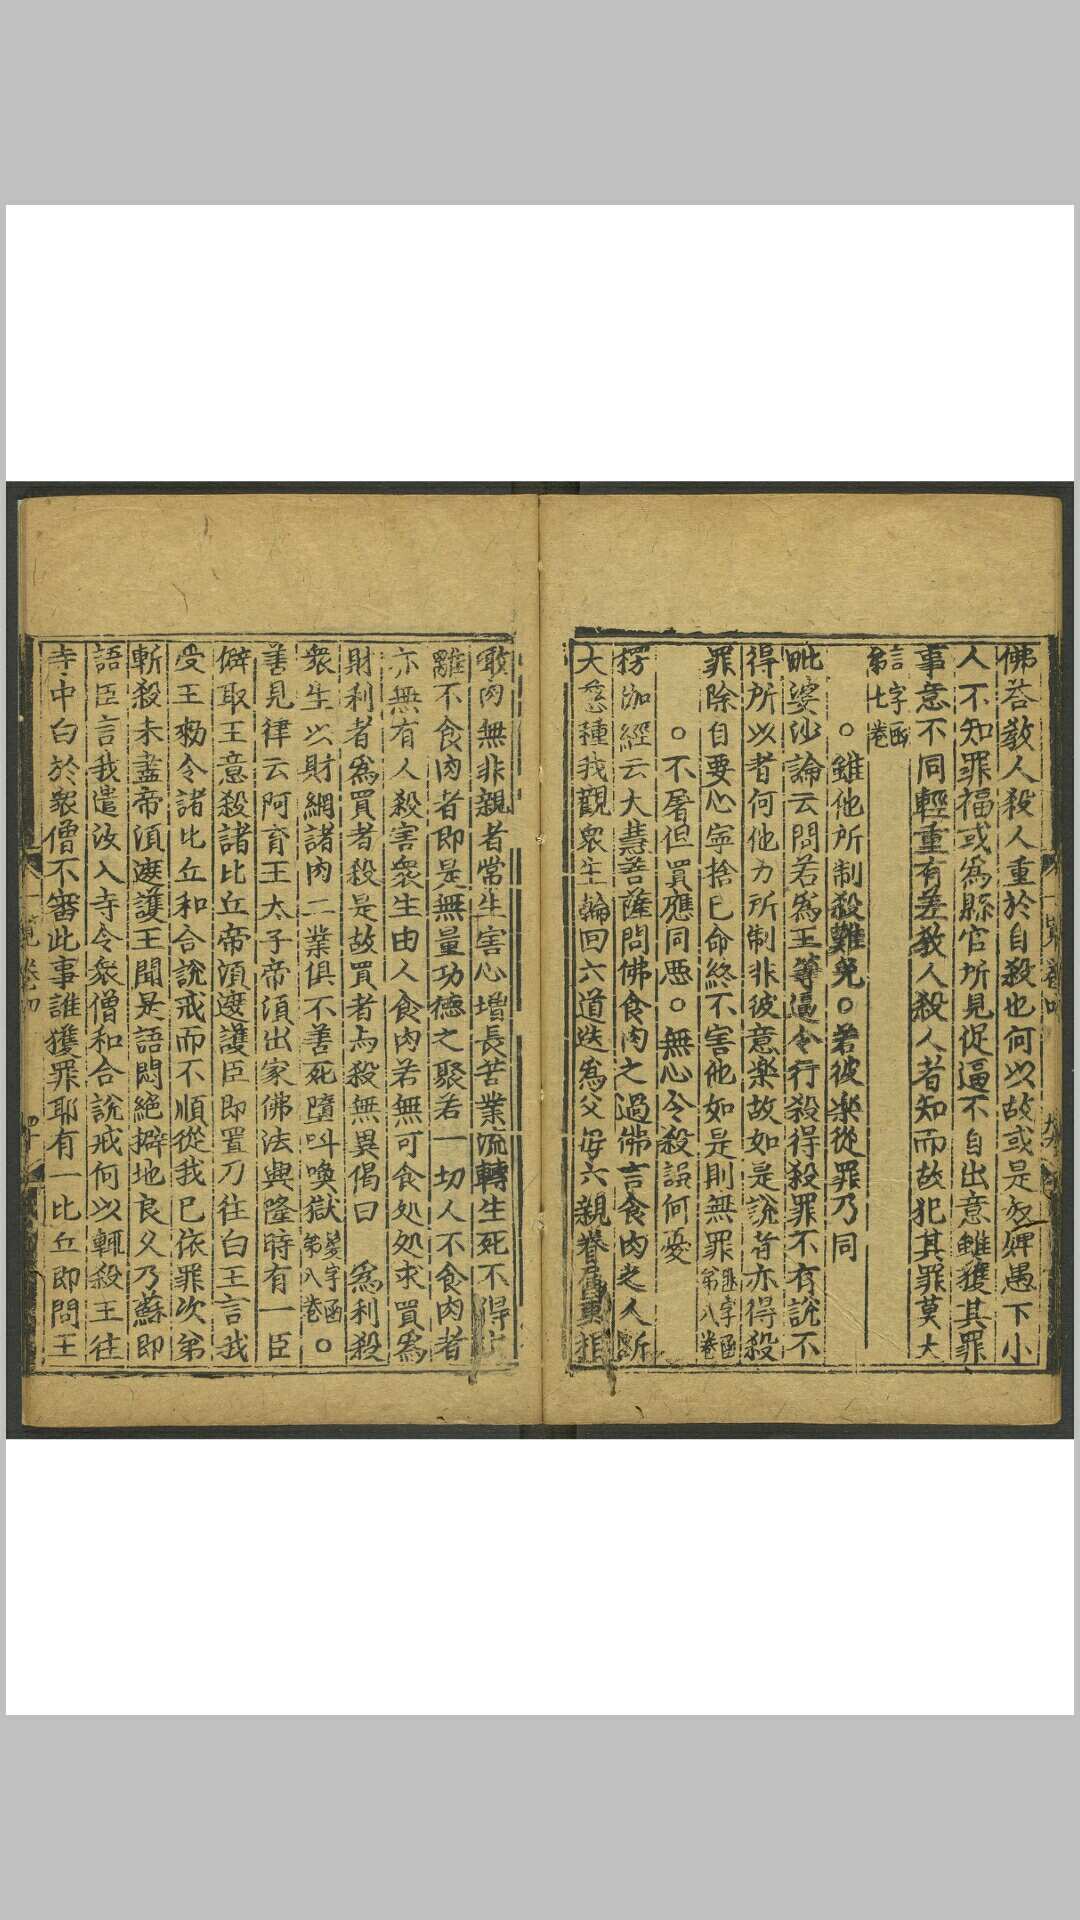 佛荅教人殺人重於自殺也何以故或是奴婢愚下小
人不知罪福或為縣官所見促逼不自出意雖獲其罪
事意不同輕重有差教人殺人者知而故犯其罪莫大
言字函
第七卷
○雖他所制殺難免○若彼樂從罪乃同
毗婆沙論云問若為王等逼令行殺得殺罪不有說不
得所以者何他力所制非彼意樂故如是說者亦得殺
罪除自要心寧捨已命終不害他如是則無罪
字函
第八卷
○不屠但買應同惡○無心令殺誤何憂
楞伽經云大慧菩薩問佛食肉之過佛言食肉之人斷
大慈種我觀衆生輪回六道迭為父母六親眷属更相
噉肉無非親者常生害心增長苦業流轉生死不得
離不食肉者即是無量功德之聚若一切人不食肉者
亦無有人殺害衆生由人食肉若無可食処処求買為
財利者為買者殺是故買者与殺無異偈曰　為利殺
衆生以財網諸肉二業俱不善死墮呌喚獄
字函
第八卷
○
善見律云阿育王太子帝湏出家佛法興隆時有一臣
僻取王意殺諸比丘帝湏遮護臣即置刀往白王言我
受王勑令諸比丘和合說戒而不順從我已依罪次第
斬殺未盡帝湏遮護王聞是語悶絕擗地良久乃蘇即
語臣言我遣汝入寺令衆僧和合說戒何以輒殺王往
寺中白於衆僧不審此事誰獲罪耶有一比丘即問王